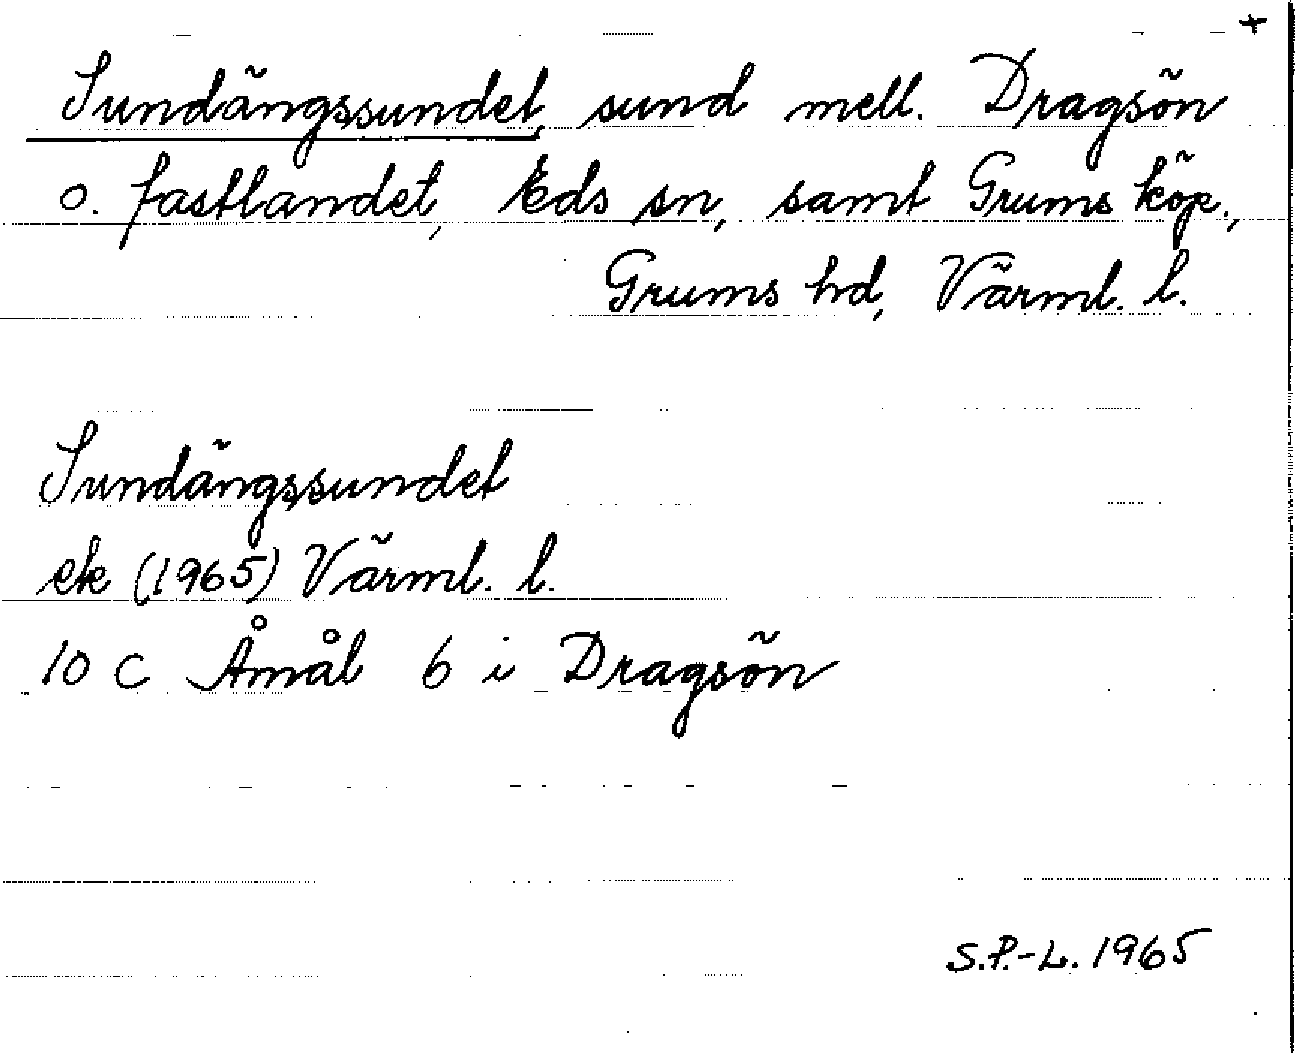 +
Sundängssundet, sund mell. Dragsön
o. fastlandet, Eds sn, samt Grums köp.,
Grums hd, Värml. l.
Sundängssundet
ek (1965) Värml. l.
10 C Åmål 6 i Dragsön
S.P.-L. 1965